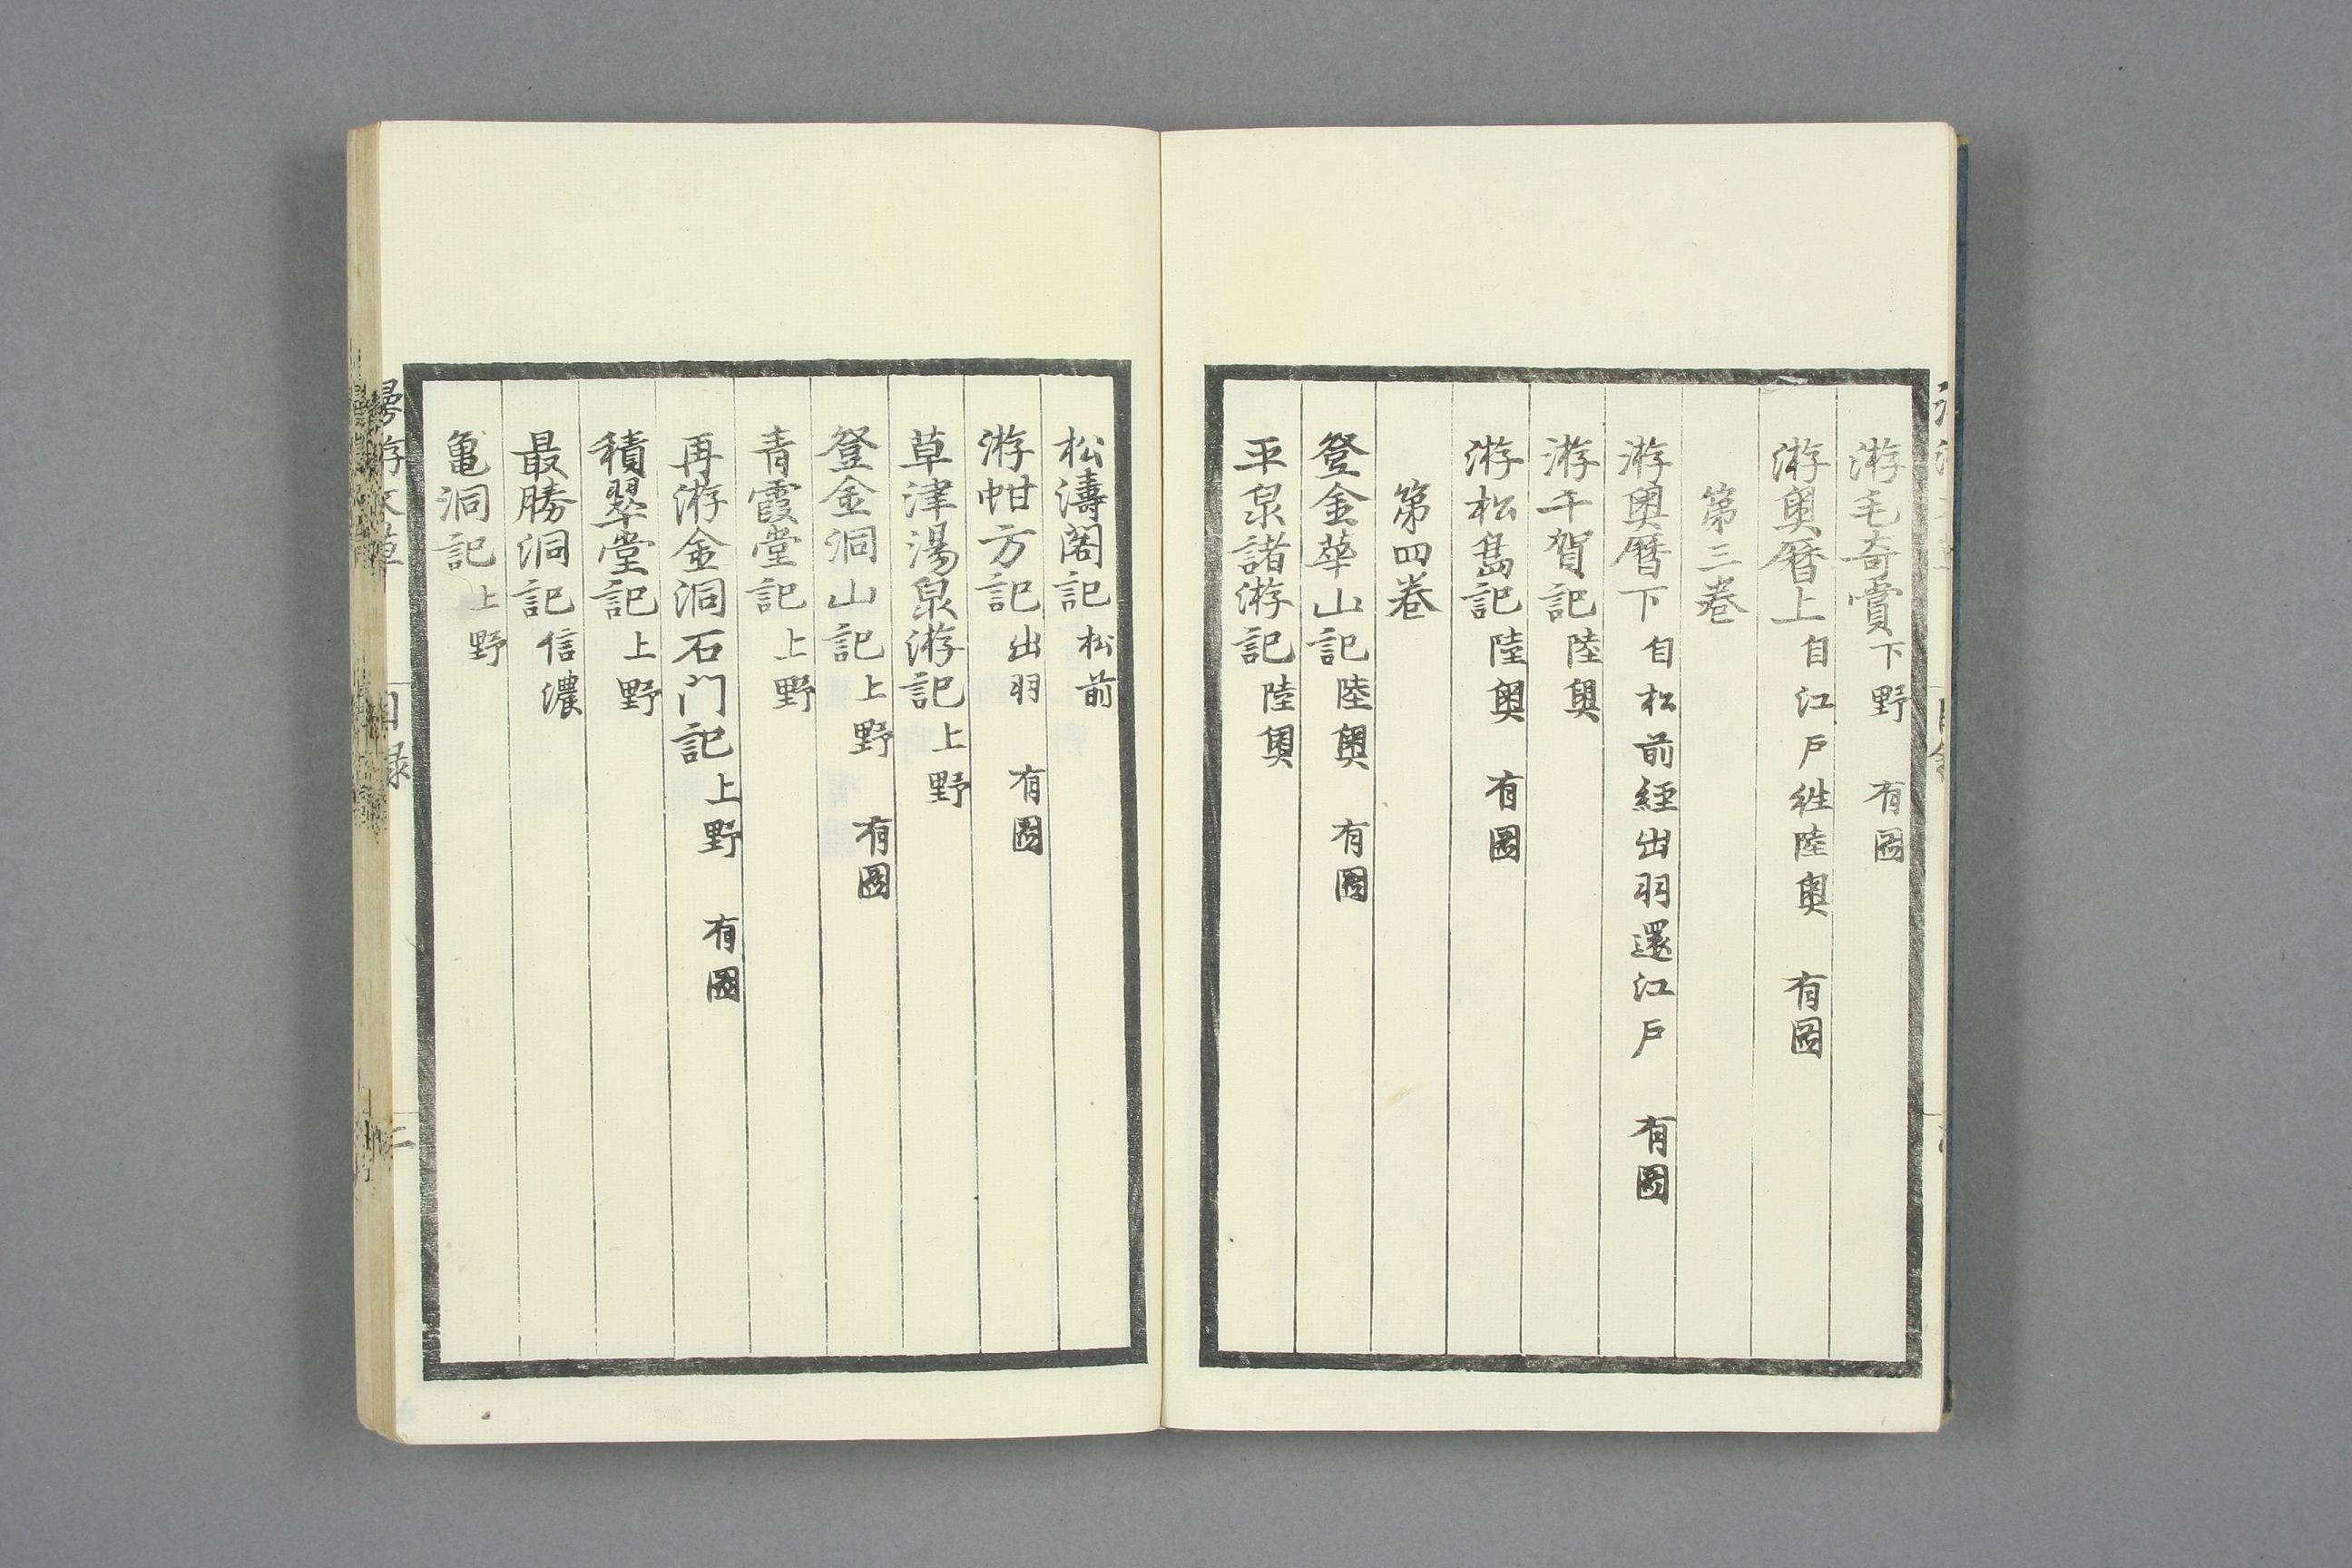 游毛奇賞 下野 有圖
游奧曆上 自江戶往陸奧 有圖
第三卷
游奧曆下 自松前經出羽還江戶 有圖
游千賀記 陸奧
游松島記 陸奧 有圖
第四卷
登金華山記 陸奧 有圖
平泉諸游記 陸奧
松濤閣記 松前
游蚶方記 出羽 有圖
草津湯泉游記 上野
登金洞山記 上野 有圖
青霞堂記 上野
再游金洞石門記 上野 有圖
積翠堂記 上野
最勝洞記 信濃
亀洞記 上野
目録
二